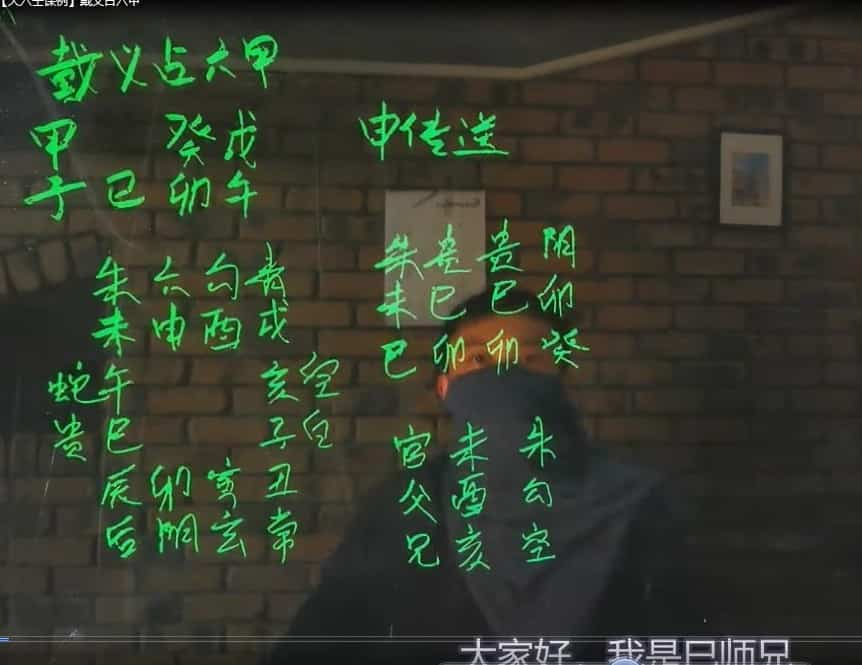 【大六壬课例】戴义占六甲
戴义占六甲
甲 癸 戊
子 巳 卯 午
申传送
朱 六 勾 青
未 申 酉 戌
蛇 午 亥 空
贵 巳 子 白
辰 卯 寅 丑
后 阴 玄 常
朱 贵 贵 阴
未 巳 巳 卯
巳 卯 卯 癸
官 未 朱
父 酉 勾
兄 亥 空
大家好，我是巳师兄